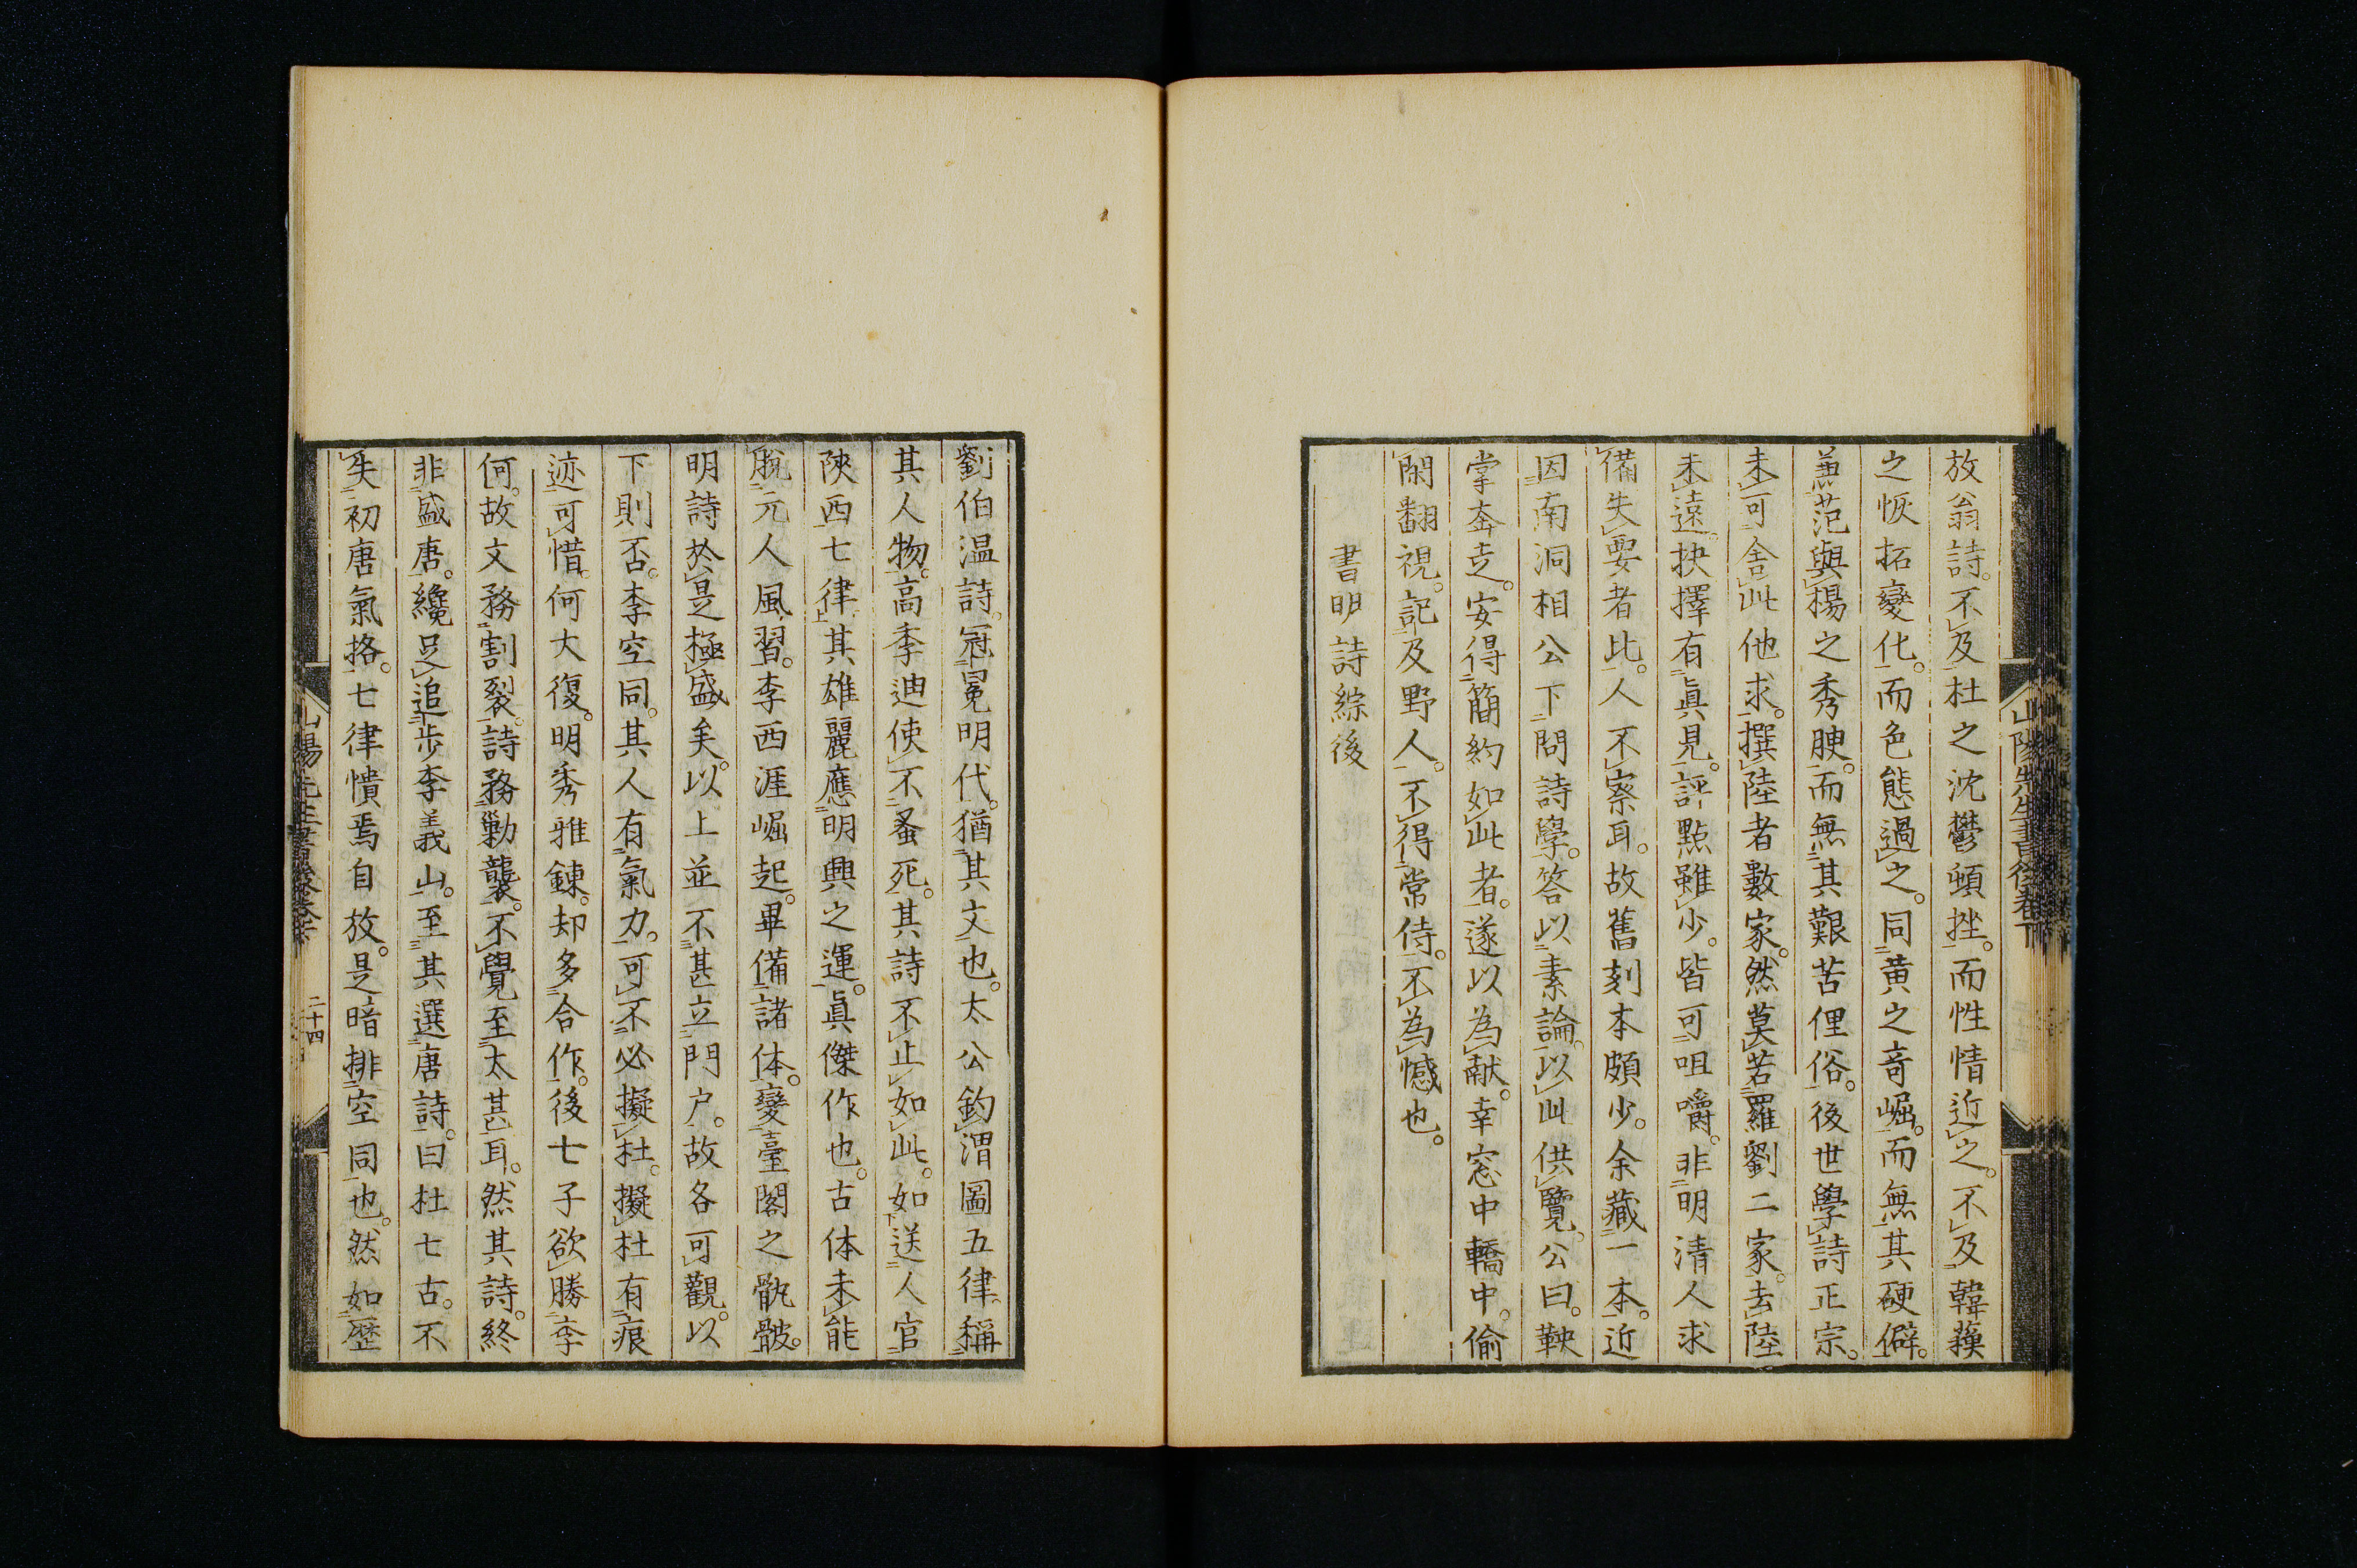 放翁詩。不及杜之沈鬱頓挫。而性情近之。不及韓蘇
之恢拓變化。而色態過之。同黄之奇崛。而無其硬僻。
兼范與楊之秀腴。而無其艱苦俚俗。後世學詩正宗。
未可舍此他求。撰陸者數家。然莫若羅劉二家。去陸
未遠。抉擇有眞見。評點雖少。皆可咀嚼。非明清人求
備失要者比。人不察耳。故舊刻本頗少。余藏一本。近
因南洞相公下問詩學。答以素論。以此供覽。公曰。鞅
掌奔走。安得簡約如此者。遂以為献。幸窓中轎中。偷
閑翻視。記及野人。不得常侍。不為憾也。
書明詩綜後
劉伯温詩。冠冕明代。猶其文也。太公釣渭圖五律。稱
其人物。高季迪使不蚤死。其詩不止如此。如送人官
陝西七律。其雄麗應明興之運。眞傑作也。古体未能
脱元人風習。李西涯崛起。畢備諸体。變臺閣之骫骳。
明詩於是極盛矣。以上並不甚立門户。故各可觀。以
下則否。李空同。其人有氣力。可不必擬杜。擬杜有痕
迹可惜。何大復。明秀雅錬。却多合作。後七子欲勝李
何。故文務割裂。詩務勦襲。不覺至太甚耳。然其詩。終
非盛唐。纔足追步李義山。至其選唐詩。曰杜七古。不
失初唐氣格。七律憒焉自放。是暗排空同也。然如歴
山陽先生書後卷下
二十四